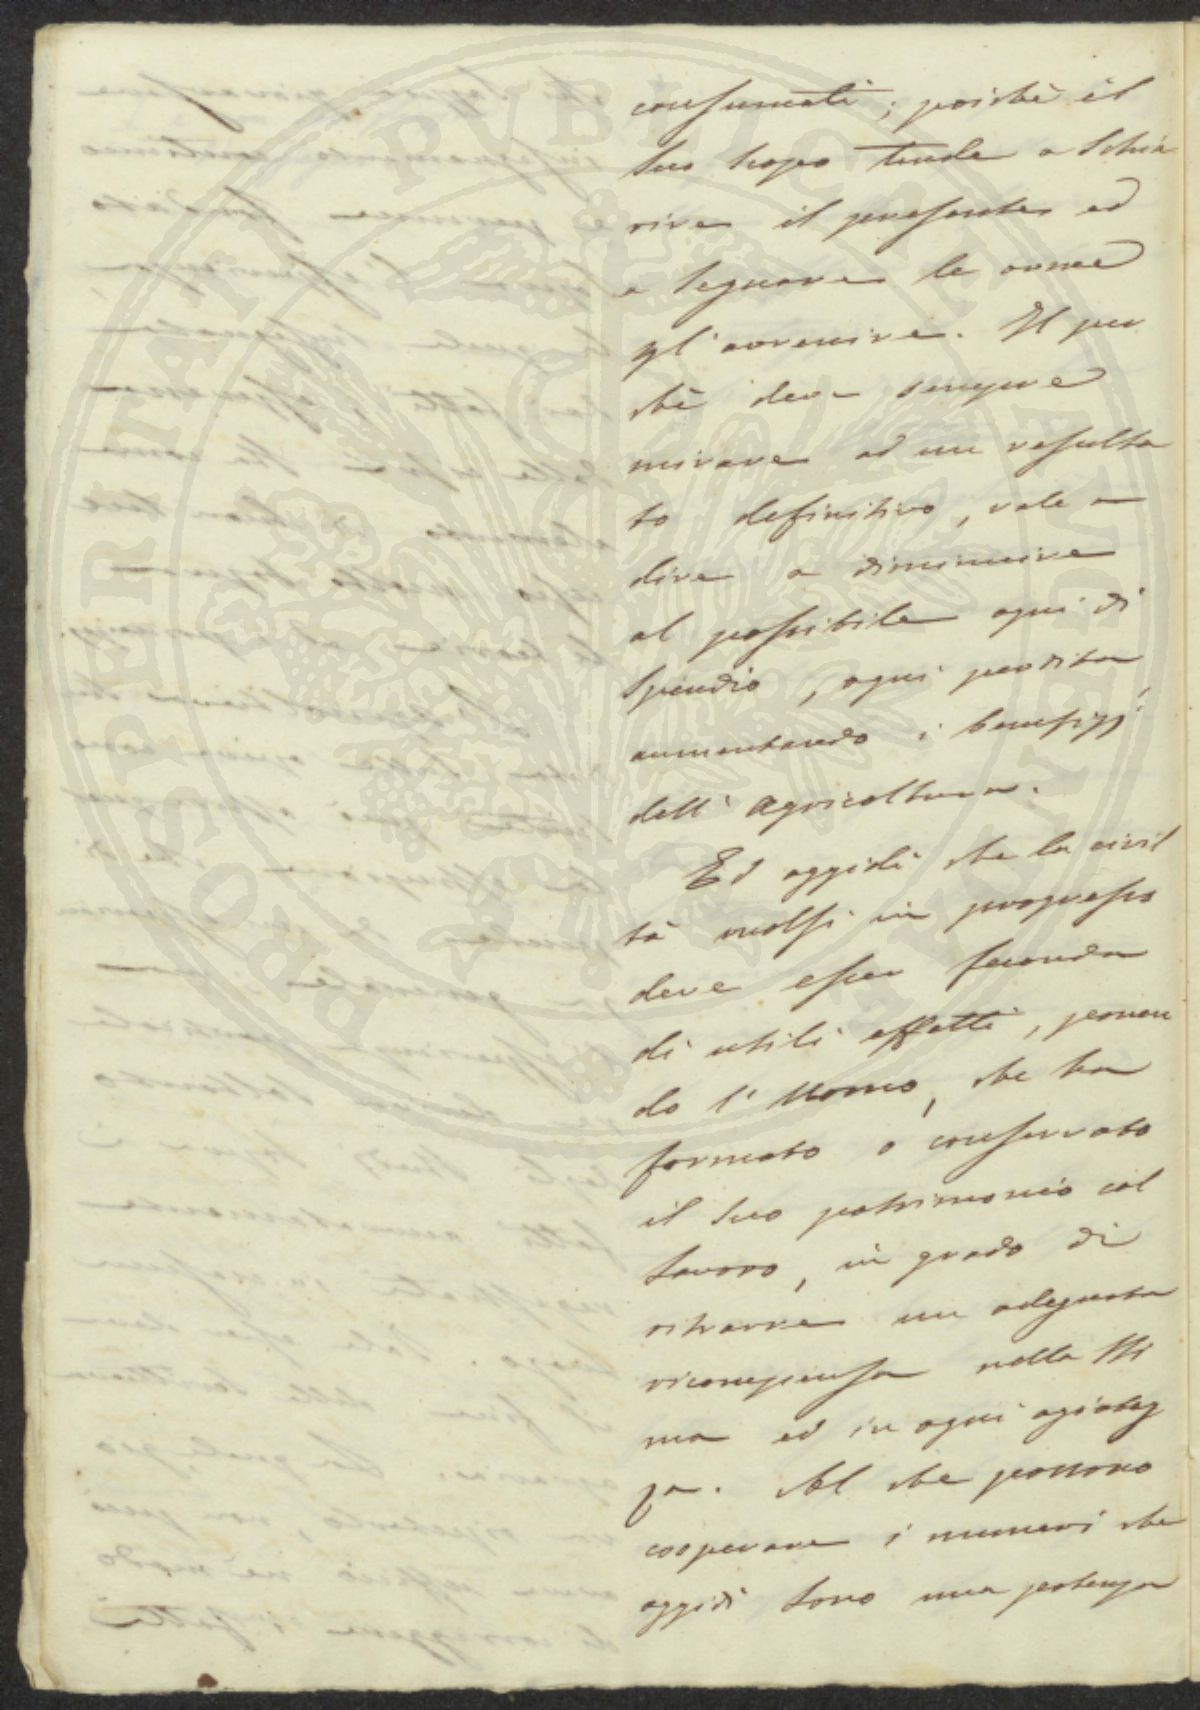 consumati; poichè il
suo scopo tende a schia
rire il presente ed
a segnare le orme
all'avvenire. Il per
chè deve sempre
mirare ad un resulta
to definitivo, vale a
dire a diminuire
al possibile ogni di
spendio, ogni perdita,
aumentando i benefizj
dell'agricoltura.
Ed oggidì che la civil
tà in progresso
deve esser feconda
di utili effetti, ponen
do l'Uomo, che ha
formato o conservato
il suo patrimonio col
lavoro, in grado di
ritrarre un adeguata
ricompensa nella sti
ma ed in ogni agiatez
za. Al che possono
cooperare i numeri che
oggidì sono una potenza
PROSPERITATI PVBLICAE